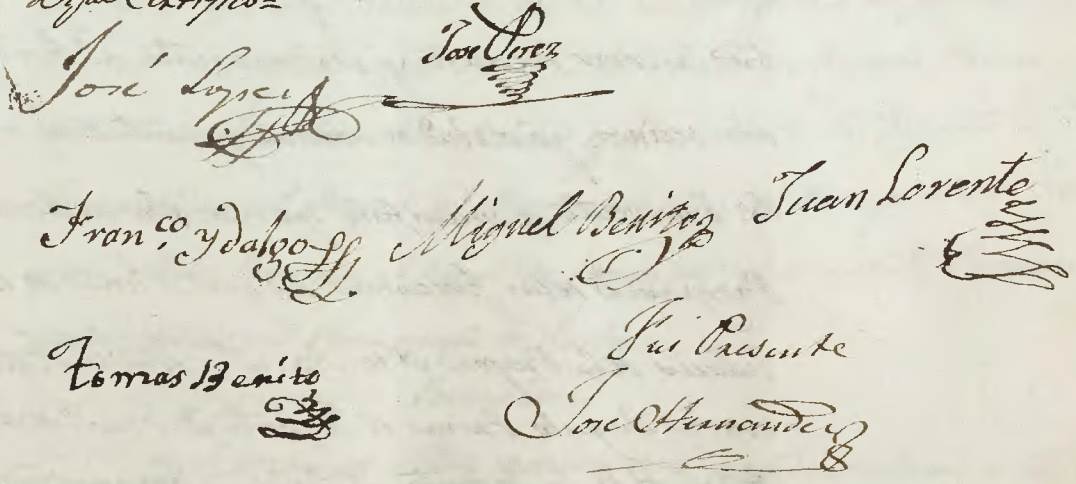 Certifico=
José Lopez
Jose Perez
Fran.co ydalgo
Miguel Benitoz
Juan Lorente
Tomas Benito
Fui Presente
Jose Hernandez